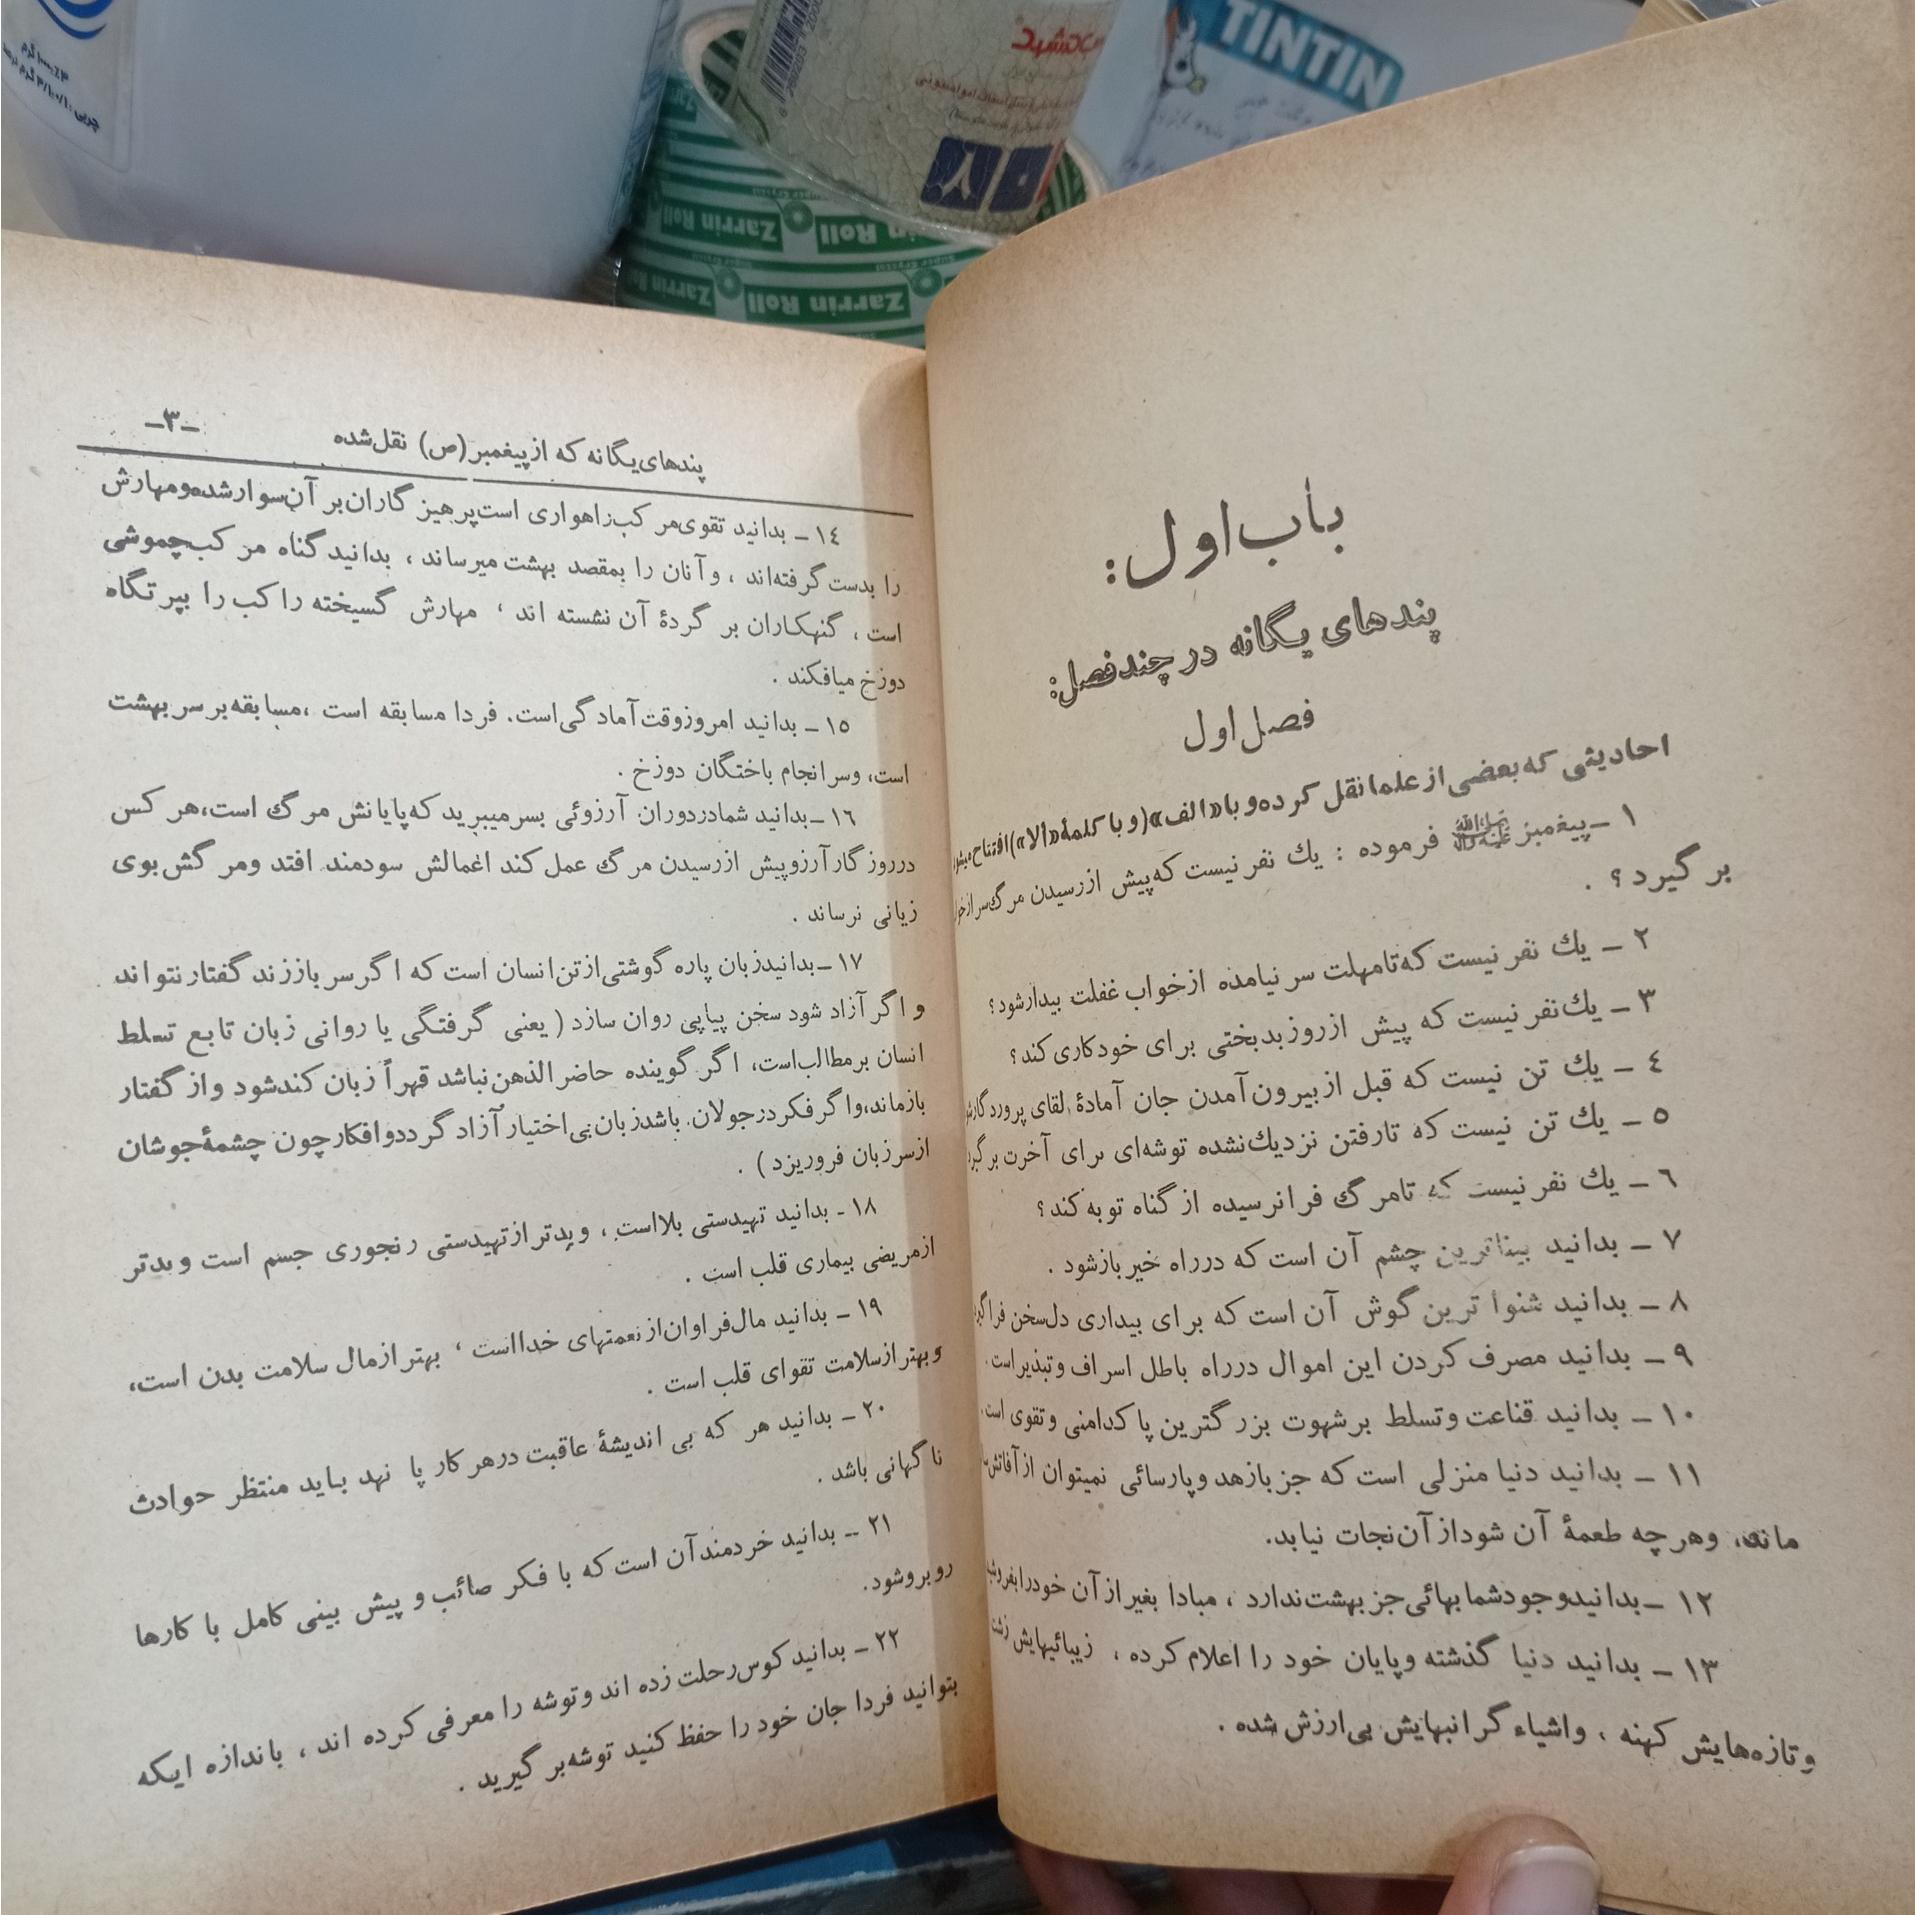 باب اول:
پندهای یگانه در چند فصل:
فصل اول
احادیثی که بعضی از علما نقل کرده و با «الف» (و با کلمهٔ «الا») افتتاح میشود
۱ – پیغمبر صلی الله علیه وآله فرموده : یك نفر نیست که پیش از رسیدن مرگ سر از خواب
بر گیرد ؟ .
۲ – یك نفر نیست که تامهلت سر نیامده از خواب غفلت بیدار شود ؟
۳ – یك نفر نیست که پیش از روز بدبختی برای خود کاری کند ؟
٤ – یك تن نیست که قبل از بیرون آمدن جان آمادهٔ لقای پروردگارش
٥ – یك تن نیست که تا رفتن نزدیك نشده توشه‌ای برای آخرت بر گیرد
٦ – یك نفر نیست که تا مرگ فرا نرسیده از گناه توبه کند ؟
۷ – بدانید بیناترین چشم آن است که در راه خیر باز شود .
۸ – بدانید شنوا ترین گوش آن است که برای بیداری دل سخن فرا گیرد
۹ – بدانید مصرف کردن این اموال در راه باطل اسراف و تبذیر است .
۱۰ – بدانید قناعت و تسلط بر شهوت بزرگترین پاکدامنی و تقوی است .
۱۱ – بدانید دنیا منزلی است که جز بازهد و پارسائی نمیتوان از آفاتش
ماند، و هر چه طعمهٔ آن شود از آن نجات نیابد.
۱۲ – بدانید وجود شما بهائی جز بهشت ندارد ، مبادا بغیر از آن خود را بفروشید
۱۳ – بدانید دنیا گذشته و پایان خود را اعلام کرده ، زیبائیهایش زشت
و تازه‌هایش کهنه ، و اشیاء گرانبهایش بی‌ارزش شده .
پندهای یگانه که از پیغمبر (ص) نقل شده –۳–
۱٤ – بدانید تقوی مرکب راهواری است پرهیز گاران بر آن سوار شده و مهارش
را بدست گرفته‌اند ، و آنان را بمقصد بهشت میرساند ، بدانید گناه مرکب چموشی
است ، گنهکاران بر گردهٔ آن نشسته اند ، مهارش گسیخته راکب را بپرتگاه
دوزخ میافکند .
۱٥ – بدانید امروز وقت آمادگی است. فردا مسابقه است ، مسابقه بر سر بهشت
است، و سرانجام باختگان دوزخ .
۱٦ – بدانید شما در دوران آرزوئی بسر میبرید که پایانش مرگ است، هر کس
در روزگار آرزو پیش از رسیدن مرگ عمل کند اعمالش سودمند افتد و مرگش بوی
زیانی نرساند .
۱۷ – بدانید زبان پاره گوشتی از تن انسان است که اگر سر باز زند گفتار نتواند
و اگر آزاد شود سخن پیاپی روان سازد ( یعنی گرفتگی یا روانی زبان تابع تسلط
انسان بر مطالب است، اگر گوینده حاضر الذهن نباشد قهراً زبان کند شود و از گفتار
بازماند، و اگر فکر در جولان باشد زبان بی اختیار آزاد گردد و افکار چون چشمهٔ جوشان
از سر زبان فرو ریزد ) .
۱۸ - بدانید تهیدستی بلا است ، و بدتر از تهیدستی رنجوری جسم است و بدتر
از مریضی بیماری قلب است .
۱۹ – بدانید مال فراوان از نعمتهای خدا است ، بهتر از مال سلامت بدن است،
و بهتر از سلامت تقوای قلب است .
۲۰ – بدانید هر که بی اندیشهٔ عاقبت در هر کار پا نهد باید منتظر حوادث
ناگهانی باشد .
۲۱ – بدانید خردمند آن است که با فکر صائب و پیش بینی کامل با کارها
روبرو شود.
۲۲ – بدانید کوس رحلت زده اند و توشه را معرفی کرده اند ، باندازه ایکه
بتوانید فردا جان خود را حفظ کنید توشه بر گیرید .
TINTIN
Zarrin Roll
Zarrin Roll
Zarrin Roll
Zarrin Roll